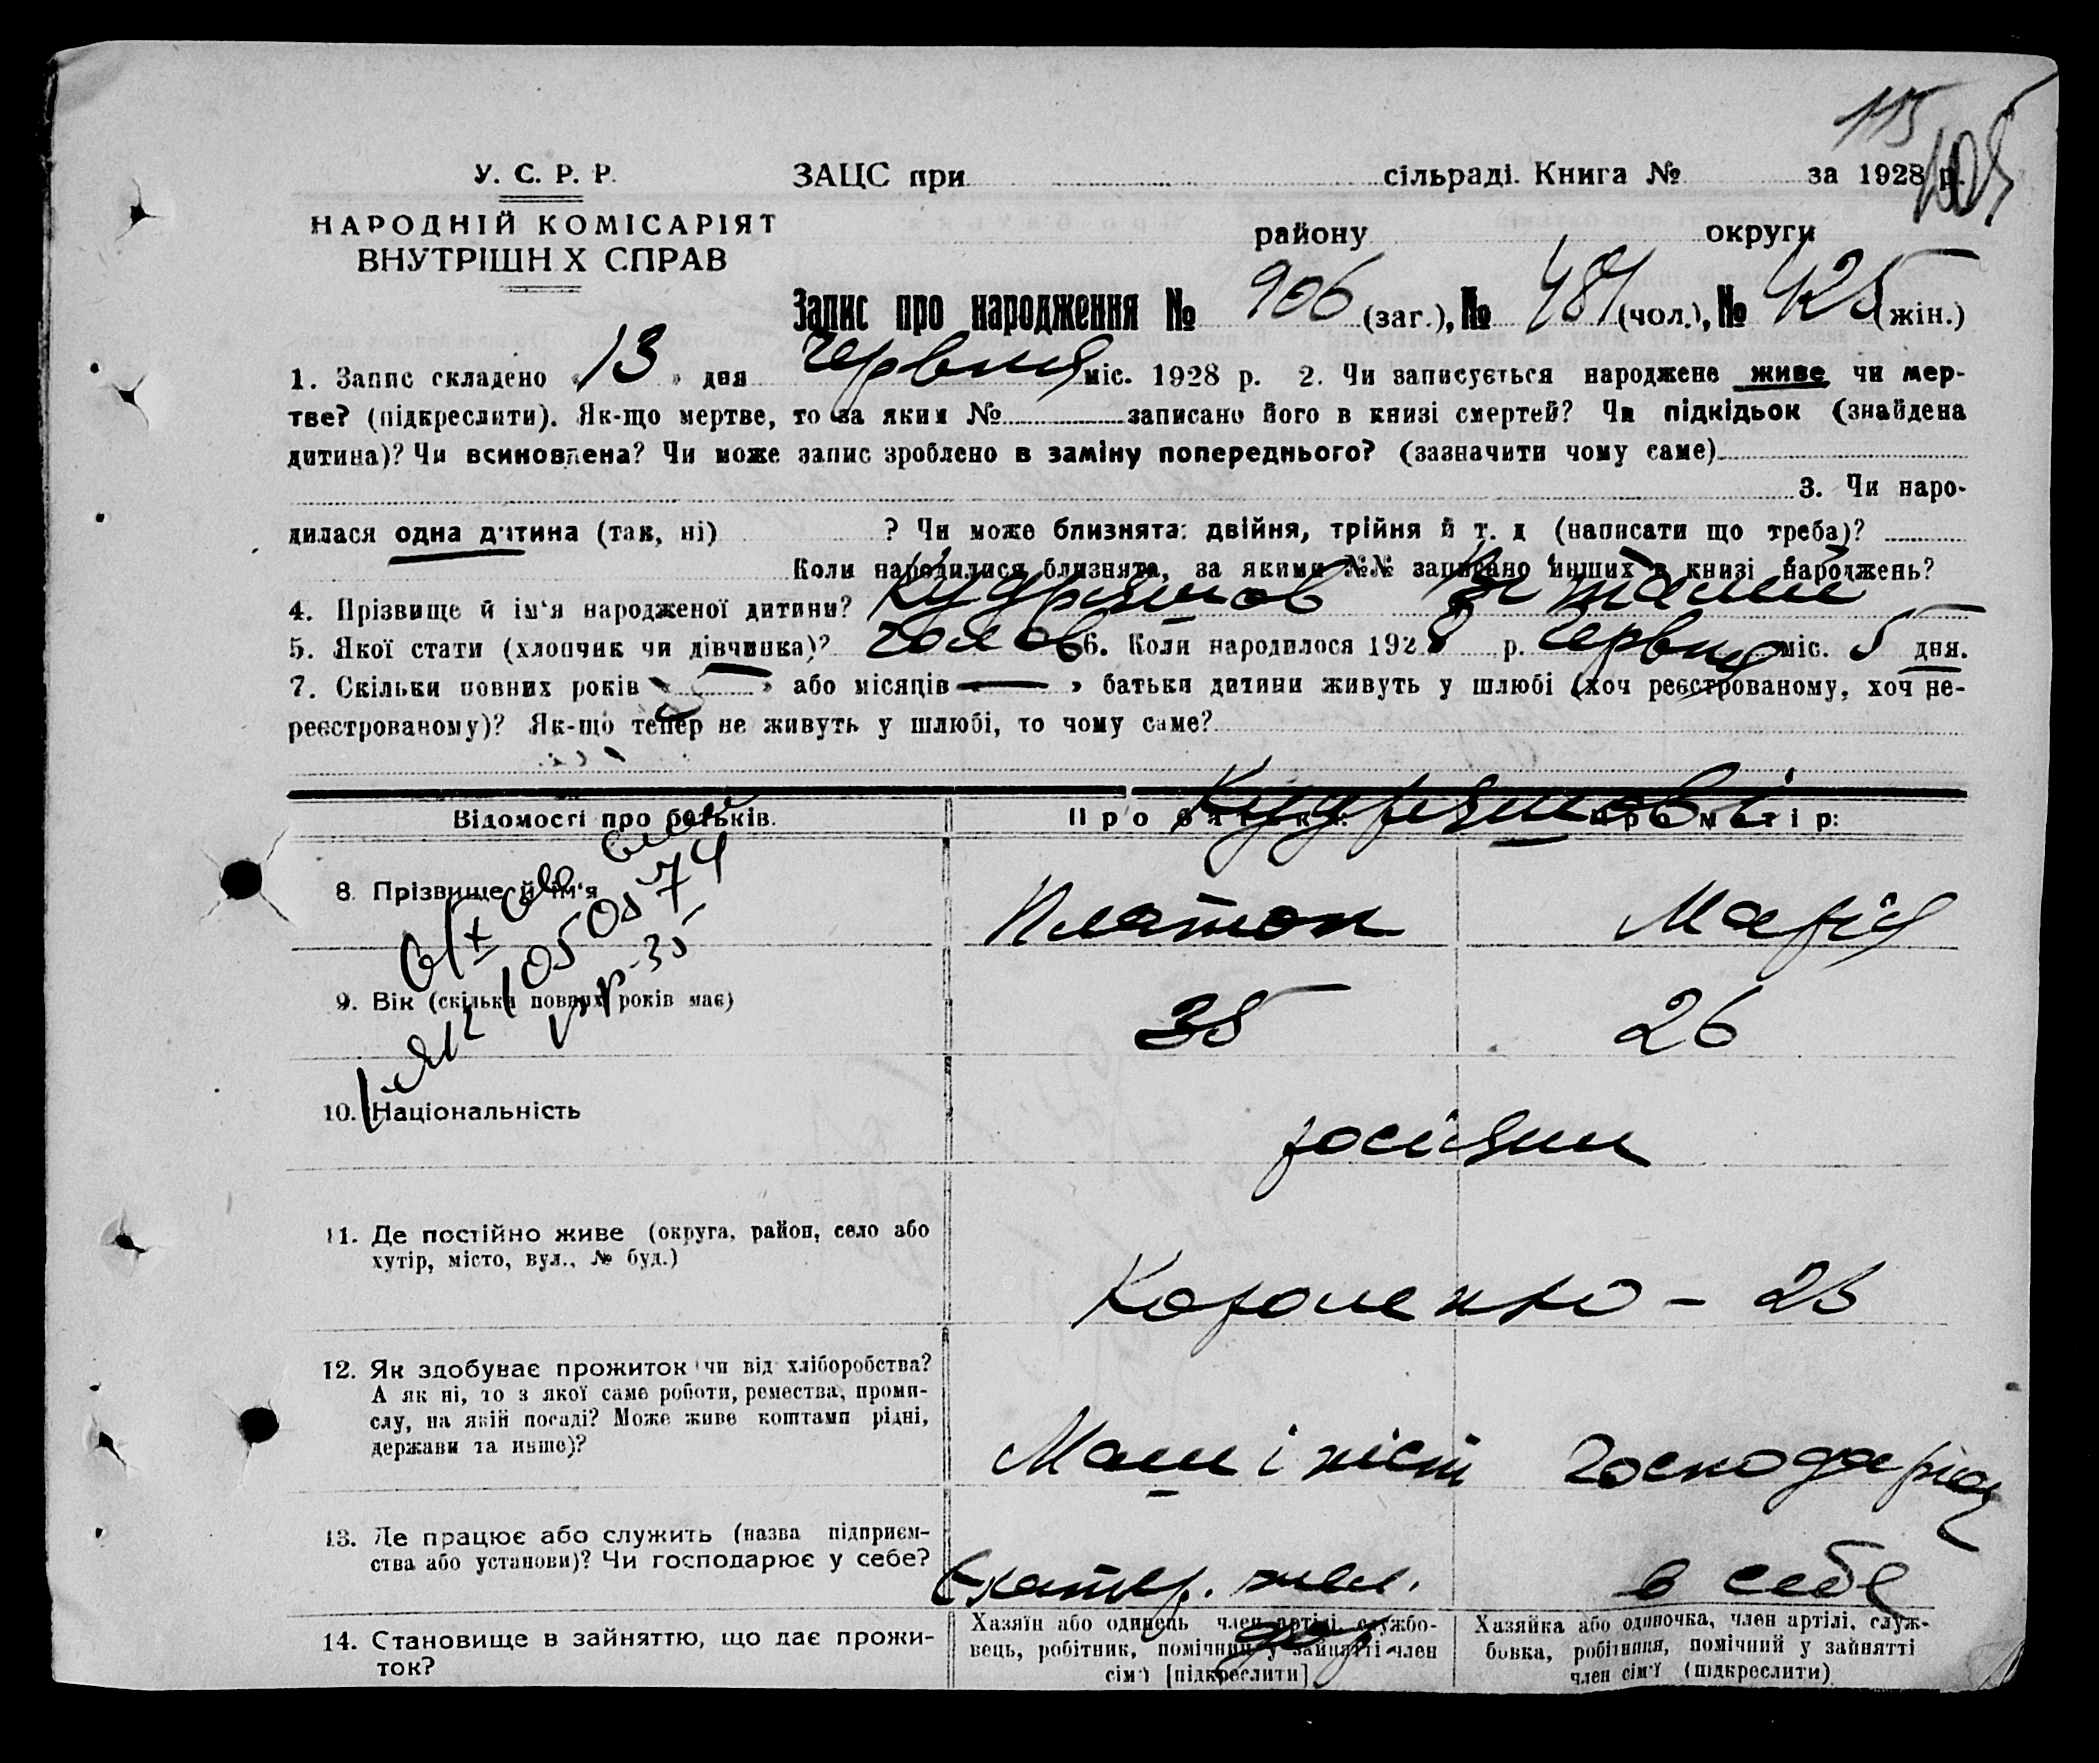 115
105
У. С. Р. Р.
ЗАЦС при сільраді. Книга № за 1928 р.
НАРОДНІЙ КОМІСАРІЯТ
ВНУТРІШН Х СПРАВ
району округи
Запис про народження № 906 (заг.), № 481 (чол.), № 425 (жін.)
1. Запис складено « 13 » дня червня міс. 1928 р. 2. Чи записується народжене живе чи мер-
тве? (підкреслити). Як-що мертве, то за яким № записано його в книзі смертей? Чи підкідьок (знайдена
дитина)? Чи всиновлена? Чи може запис зроблено в заміну попереднього? (зазначити чому саме)
3. Чи наро-
дилася одна дитина (так, ні) ? Чи може близнята: двійня, трійня й т. д (написати що треба)?
Коли народилися близнята, за якими №№ записано инших в книзі народжень?
4. Прізвище й ім'я народженої дитини? Кудряшов Віталій
5. Якої стати (хлопчик чи дівчинка)? чолов 6. Коли народилося 1928 р. червня міс. 5 дня.
7. Скільки повних років « 5 » або місяців « — » батьки дитини живуть у шлюбі (хоч реєстрованому, хоч не-
реєстрованому)? Як-що тепер не живуть у шлюбі, то чому саме?
Кудряшові
Відомості про батьків. Про батька: Про матір:
8. Прізвище й ім'я Платон Марія
9. Вік (скільки повних років має) 35 26
10. Національність росіяни
11. Де постійно живе (округа, район, село або
хутір, місто, вул., № буд.)
Короленко - 23
12. Як здобуває прожиток (чи від хліборобства?
А як ні, то з якої саме роботи, ремества, проми-
слу, на якій посаді? Може живе коштами рідні,
держави та инше)?
Машініст Господарює
13. Де працює або служить (назва підприєм-
ства або установи)? Чи господарює у себе?
Екатер. жел. дор. в себе
14. Становище в зайняттю, що дає прожи-
ток?
Хазяїн або одинець член артілі, службо-
вець, робітник, помічний у зайнятті член
сім'ї [підкреслити]
Хазяйка або одиночка, член артілі, служ-
бовка, робітниця, помічний у зайнятті
член сім'ї (підкреслити)